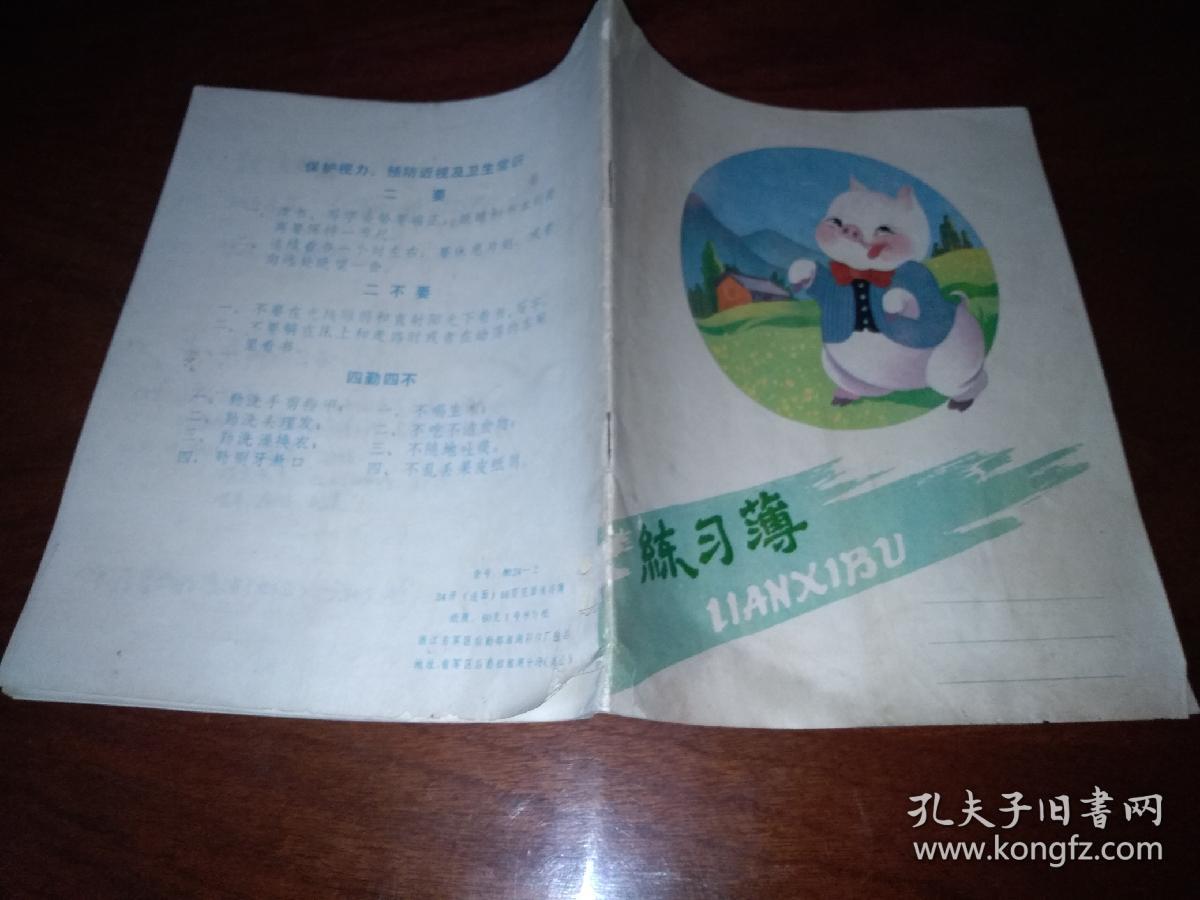 保护视力、预防近视及卫生常识
二 要
一、读书、写字姿势要端正，眼睛和书本的距
离要保持一市尺。
二、连续看书一个时左右，要休息片刻，或者
向远处眺望一会。
二 不 要
一、不要在光线暗弱和直射阳光下看书、写字。
二、不要躺在床上和走路时或者在动荡的车厢
里看书。
四勤四不
一、勤洗手剪指甲；
二、勤洗头理发；
三、勤洗澡换衣；
四、勤刷牙漱口
一、不喝生水；
二、不吃不洁食物；
三、不随地吐痰。
四、不乱丢果皮纸屑。
24开
练习薄
LIANXIBU
孔夫子旧书网
www.kongfz.com